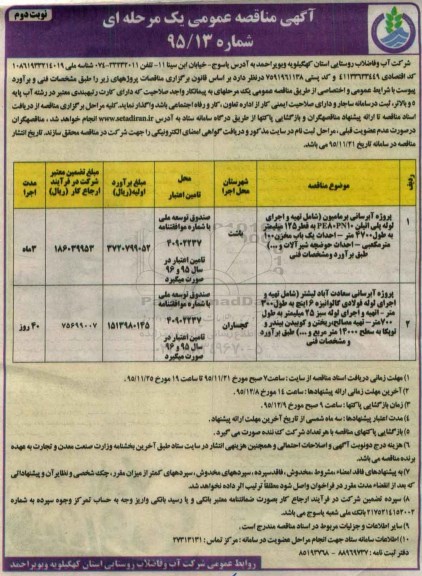 نوبت دوم
آگهی مناقصه عمومی یک مرحله ای
شماره ۹۵/۱۳
شرکت آب وفاضلاب روستایی استان کهگیلویه وبویراحمد به آدرس یاسوج - خیابان ابن سینا ۱۱- تلفن ۳۲۲۳۲۰۱۱-۰۷۴ شناسه ملی ۱۰۸۶۱۹۳۳۲۱۴۰۱۹
کد اقتصادی ۴۱۱۳۳۶۳۳۴۴۹ و کد پستی ۷۵۹۱۹۹۱۱۳۸ درنظر دارد بر اساس قانون برگزاری مناقصات پروژههای زیر را طبق مشخصات فنی و برآورد
پیوست با شرایط عمومی و اختصاصی از طریق مناقصه عمومی یک مرحلهای به پیمانکار واجد صلاحیت که دارای کارت رتبهبندی معتبر در رشته آب پایه
۵ و بالاتر، ثبت درسامانه ساجار و دارای صلاحیت ایمنی کار از اداره تعاون، کار و رفاه اجتماعی باشد واگذار نماید. کلیه مراحل برگزاری مناقصه از دریافت
اسناد مناقصه تا ارائه پیشنهاد مناقصهگران و بازگشایی پاکتها از طریق درگاه سامانه ستاد به آدرس www.setadiran.ir انجام خواهد شد. مناقصهگران
درصورت عدم عضویت قبلی، مراحل ثبت نام در سایت مذکور و دریافت گواهی امضای الکترونیکی را جهت شرکت در مناقصه محقق سازند. تاریخ انتشار
مناقصه در سامانه تاریخ ۹۵/۱۱/۲۱ می باشد.
ردیف | موضوع مناقصه | شهرستان محل اجرا | محل تامین اعتبار | مبلغ برآورد اولیه(ریال) | مبلغ تضمین معتبر شرکت در فرآیند ارجاع کار (ریال) | مدت اجرا
۱ | پروژه آبرسانی برمامیون (شامل تهیه و اجرای لوله پلی اتیلن PE80PN10 به قطر ۱۲۵ میلیمتر به طول ۴۷۰۰ متر - احداث یک باب مخزن ۱۰۰ مترمکعبی - احداث حوضچه شیرآلات و ...) طبق برآورد ومشخصات فنی | باشت | صندوق توسعه ملی با شماره موافقتنامه ۴۰۹۰۲۲۳۷ تامین اعتبار در سال ۹۵ و ۹۶ صورت میگیرد | ۳۷۲۰۷۹۹۰۵۲ | ۱۸۶۰۳۹۹۵۳ | ۳ماه
۲ | پروژه آبرسانی سعادت آباد لیشتر (شامل تهیه و اجرای لوله فولادی گالوانیزه ۶ اینچ به طول ۳۰۰ متر - تهیه و اجرای لوله سبز ۲۵ میلیمتر به طول ۷۰۰متر - تهیه مصالح، پریختن و کوبیدن بیندر و توپکا به سطح ۱۲۰۰۰ متر مربع و ...) طبق برآورد و مشخصات فنی | گچساران | صندوق توسعه ملی با شماره موافقتنامه ۴۰۹۰۲۲۳۷ تامین اعتبار در سال ۹۵ و ۹۶ صورت میگیرد | ۱۵۱۳۹۸۰۱۳۵ | ۷۵۶۹۹۰۰۷ | ۴۰ روز
۱) مهلت زمانی دریافت اسناد مناقصه از سایت : ساعت ۷ صبح مورخ ۹۵/۱۱/۲۱ تا ساعت ۱۹ مورخ ۹۵/۱۱/۲۵.
۲) آخرین مهلت زمانی ارائه پیشنهادها : ساعت ۱۴ مورخ ۹۵/۱۲/۸.
۳) زمان بازگشایی پاکتها : ساعت ۹ صبح مورخ ۹۵/۱۲/۹.
۴) مدت اعتبار پیشنهادها : سه ماه شمسی از تاریخ آخرین مهلت ارائه پیشنهاد.
۵) بازگشایی پاکتهای مناقصه با هر تعداد شرکت کننده صورت می گیرد.
۶) هزینه درج دونوبت آگهی و اصلاحات احتمالی و همچنین هزینهی انتشار در سایت ستاد طبق آخرین بخشنامه وزارت صنعت معدن و تجارت به عهده
برنده مناقصه می باشد.
۷) به پیشنهادهای فاقد امضاء مشروط، مخدوش، فاقد سپرده، سپردههای مخدوش، سپردههای کمتر از میزان مقرر، چک شخصی و نظایر آن و پیشنهاداتی
که بعد از انقضاء مدت مقرر در فراخوان واصل شود مطلقاً ترتیب اثر داده نخواهد شد.
۸) سپرده تضمین شرکت در فرآیند ارجاع کار بصورت ضمانتنامه معتبر بانکی و یا رسید بانکی واریز وجه به حساب تمرکز وجوه سپرده به شماره
۲۱۷۵۲۱۴۱۵۲۰۰۲ بانک ملی شعبه یاسوج می باشد.
۹) سایر اطلاعات و جزئیات مربوط در اسناد مناقصه مندرج است.
۱۰) اطلاعات سامانه ستاد جهت انجام مراحل عضویت در سامانه : مرکز تماس : ۲۷۳۱۳۱۳۱
دفتر ثبت نامه : ۸۸۹۶۹۷۳۷ - ۸۵۱۹۳۷۶۸
روابط عمومی شرکت آب وفاضلاب روستایی استان کهگیلویه وبویراحمد